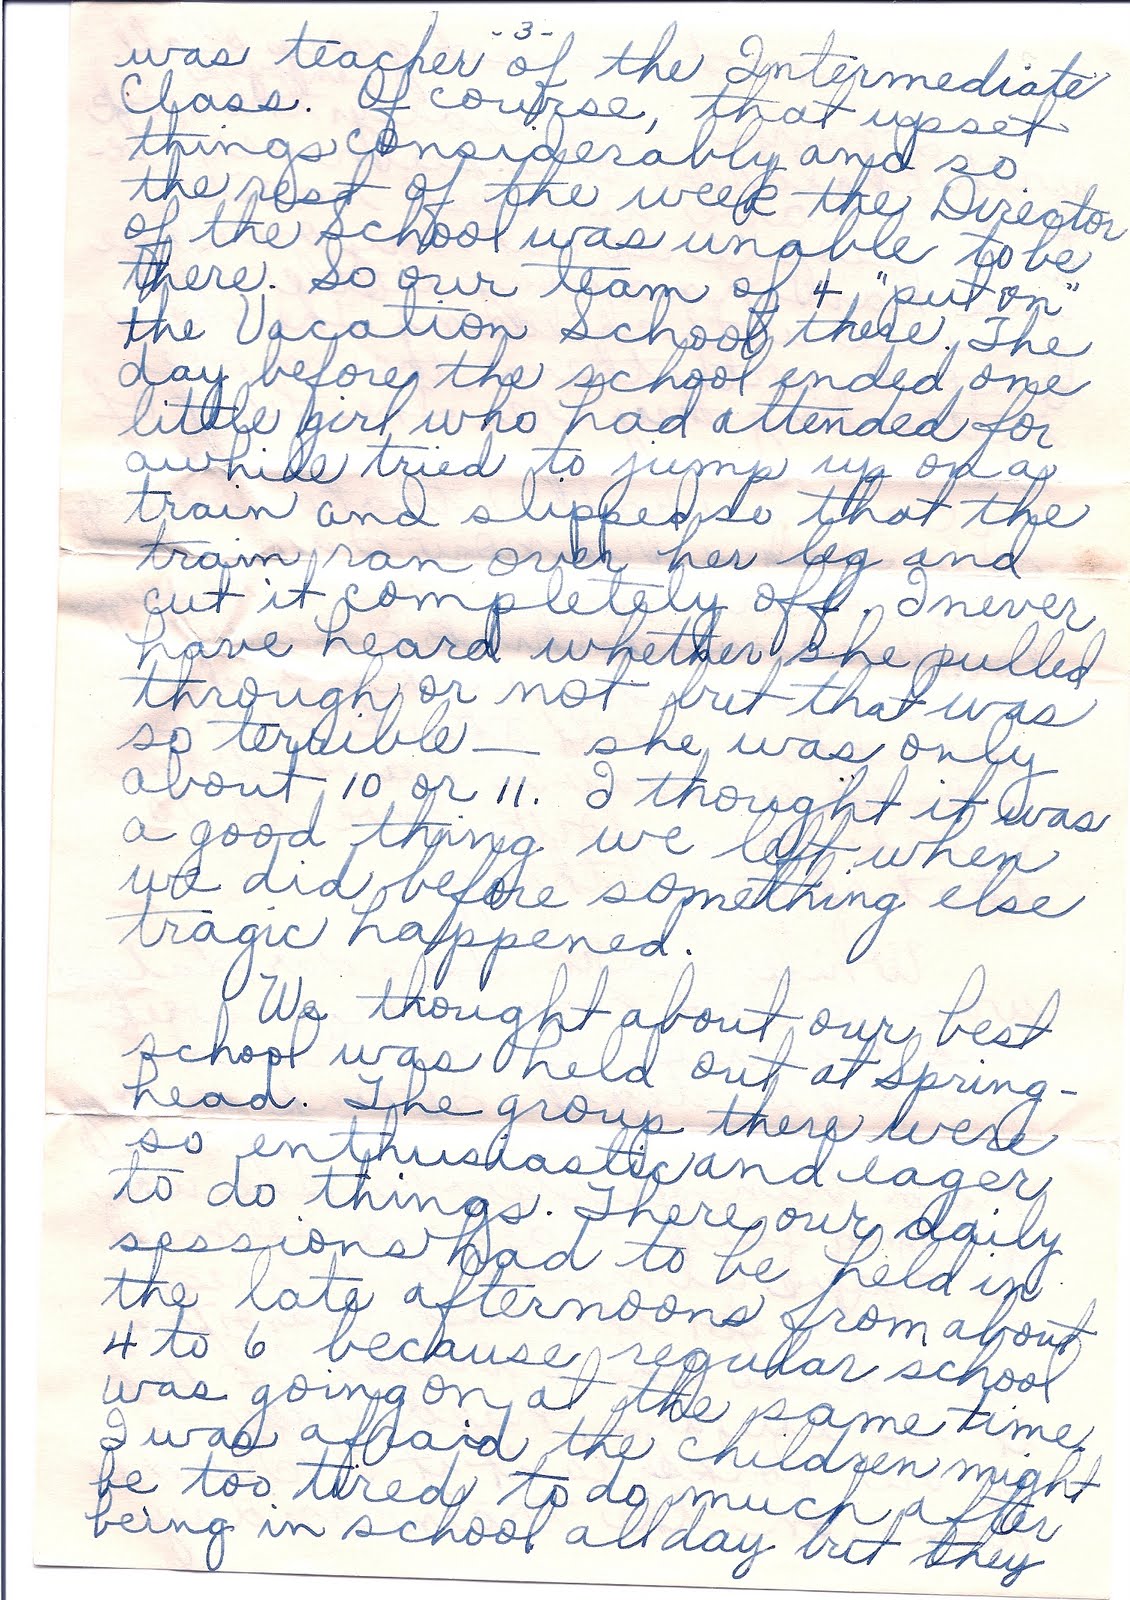 - 3 -
was teacher of the Intermediate
Class. Of course, that upset
things considerably and so
the rest of the week the Director
of the School was unable to be
there. So our team of 4 "put on"
the Vacation School there. The
day before the school ended one
little girl who had attended for
awhile tried to jump up on a
train and slipped so that the
train ran over her leg and
cut it completely off. I never
have heard whether she pulled
through or not but that was
so terrible — she was only
about 10 or 11. I thought it was
a good thing we left when
we did before something else
tragic happened.
We thought about our best
school was held out at Spring-
head. The group there were
so enthusiastic and eager
to do things. There our daily
sessions had to be held in
the late afternoons from about
4 to 6 because regular school
was going on at the same time.
I was afraid the children might
be too tired to do much after
being in school all day but they